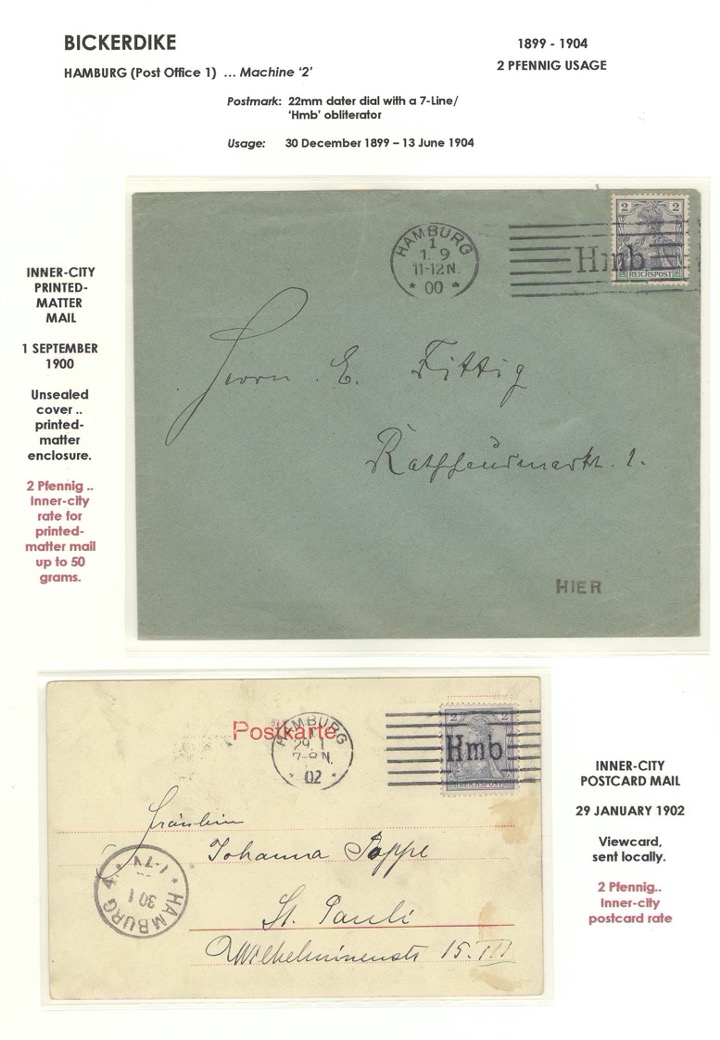 BICKERDIKE
1899 - 1904
HAMBURG (Post Office 1) … Machine ‘2’
2 PFENNIG USAGE
Postmark: 22mm dater dial with a 7-Line/
‘Hmb’ obliterator
Usage: 30 December 1899 – 13 June 1904
INNER-CITY
PRINTED-
MATTER
MAIL
1 SEPTEMBER
1900
Unsealed
cover ..
printed-
matter
enclosure.
2 Pfennig ..
Inner-city
rate for
printed-
matter mail
up to 50
grams.
HAMBURG
1
1. 9
11-12 N.
* 00 *
Hmb
2 2
REICHSPOST
Herrn E. Fittig
Rathhausmarkt 1.
HIER
Postkarte
HAMBURG
29. 1
7-8 N.
* 02 *
Hmb
2
REICHSPOST
Fräulein
Johanna Poppe
St. Pauli
Wilhelminenstr 15. III
HAMBURG 4
30 1
1-7 V
INNER-CITY
POSTCARD MAIL
29 JANUARY 1902
Viewcard,
sent locally.
2 Pfennig..
Inner-city
postcard rate